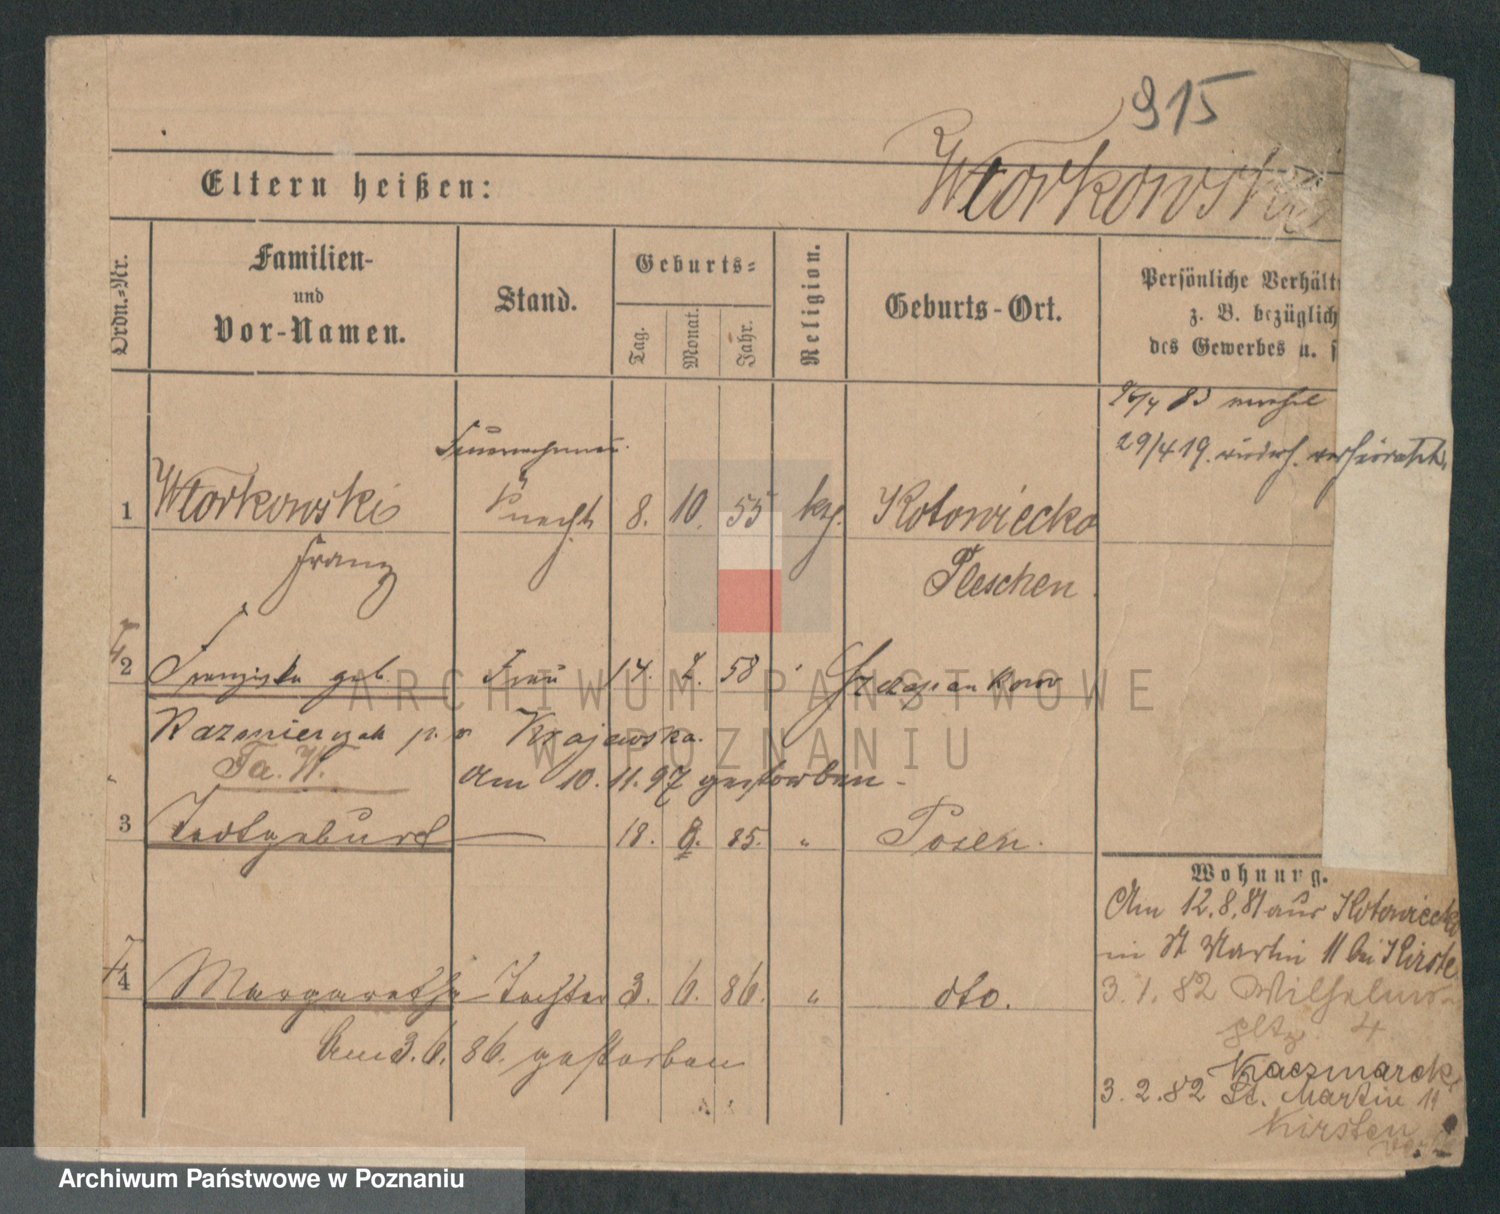 915
Wtorkowski
Eltern heißen:
Ordn.-Nr.
Familien-
und
Vor-Namen.
Stand.
Geburts-
Tag.
Monat.
Jahr.
Religion.
Geburts-Ort.
Persönliche Verhält
z. B. bezüglich
des Gewerbes u. s
29/4 19. wiederh. verheiratet
1 Wtorkowski Knecht 8. 10. 55 kth. Kotowiecko
Franz Pleschen
2 Franziska geb. Frau 14. 58
Kazmierczak Krajewska.
Fa. W. am 10. 11. 97 gestorben
3 Todtgeburt — 18. 85. " Posen.
4 Margarethe Tochter 3. 6. 86. " dto.
Am 3. 6. 86. gestorben
Wohnung.
Am 12. 8. 81 aus Kotowiecko
in St Martin 11 bei Kirste
3. 1. 82 Wilhelms-
pltz. 4
Kaczmarek
3. 2. 82 St. Martin 11
Kirsten
ARCHIWUM PAŃSTWOWE
W POZNANIU
Archiwum Państwowe w Poznaniu